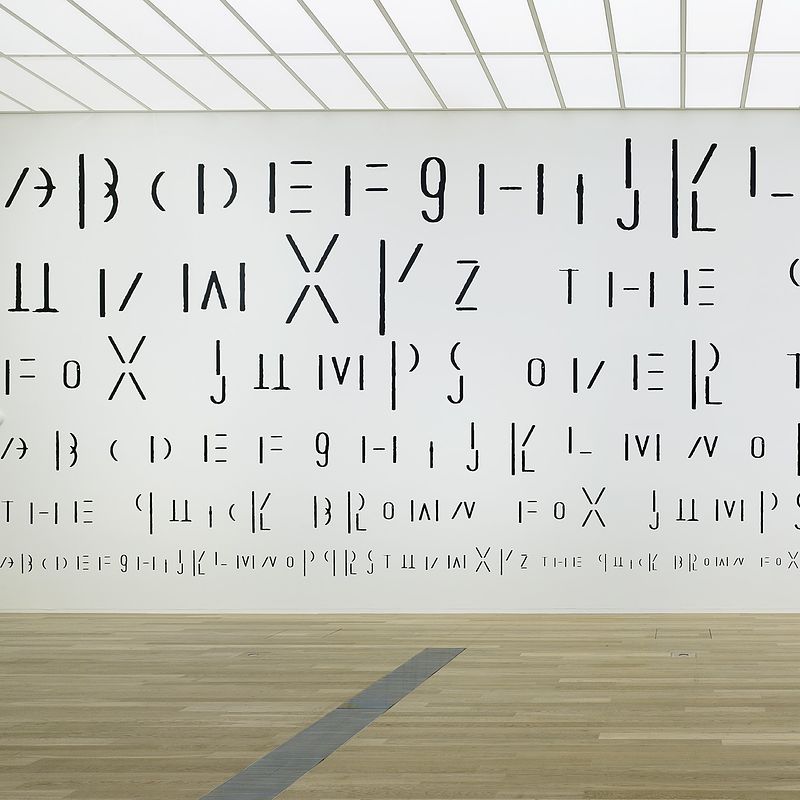 A B C D E F G H I J K L
U V W X Y Z THE
FOX JUMPS OVER T
A B C D E F G H I J K L M N O
THE QUICK BROWN FOX JUMPS
A B C D E F G H I J K L M N O P Q R S T U V W X Y Z THE QUICK BROWN FOX